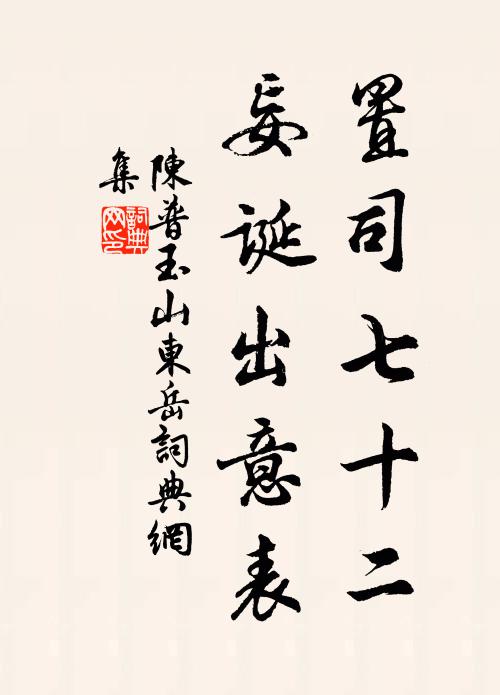 置司七十二
妄誕出意表
陳普玉山東岳詞典網
集
詞典网印